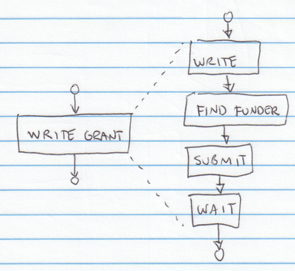 WRITE GRANT
WRITE
FIND FUNDER
SUBMIT
WAIT